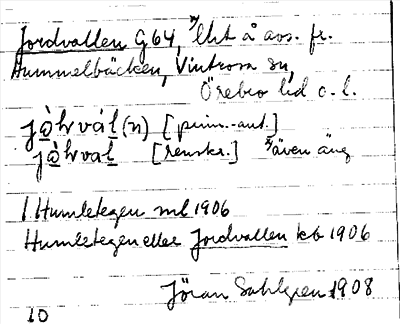 Jordvallen G64, lht å avs. fr.
Hummelbäcken, Vintrosa sn,
Örebro lld o. l.
jo̱hvál(n) [prim.-ant.]
jo̱hval [renskr.] även äng
1 Humletegen ml 1906
Humletegen eller Jordvallen kb 1906
Jöran Sahlgren 1908
10